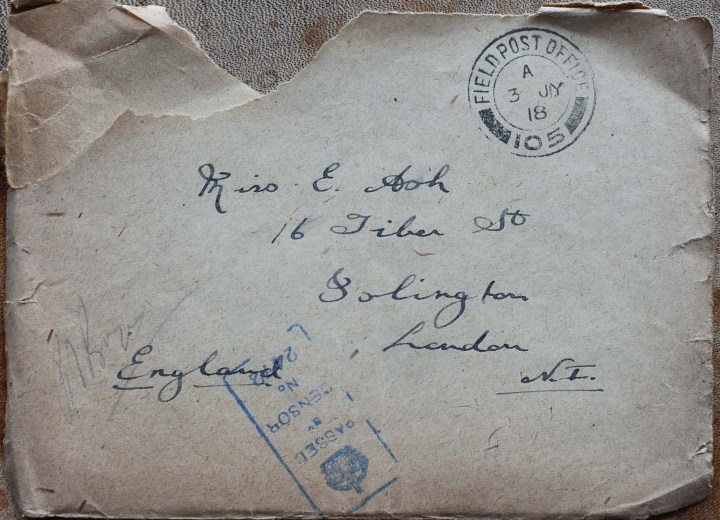 FIELD POST OFFICE
A
3 JY
18
105
Miss E. Ash
16 Tiber St
Islington
London
N.1.
England
PASSED
BY
CENSOR
No